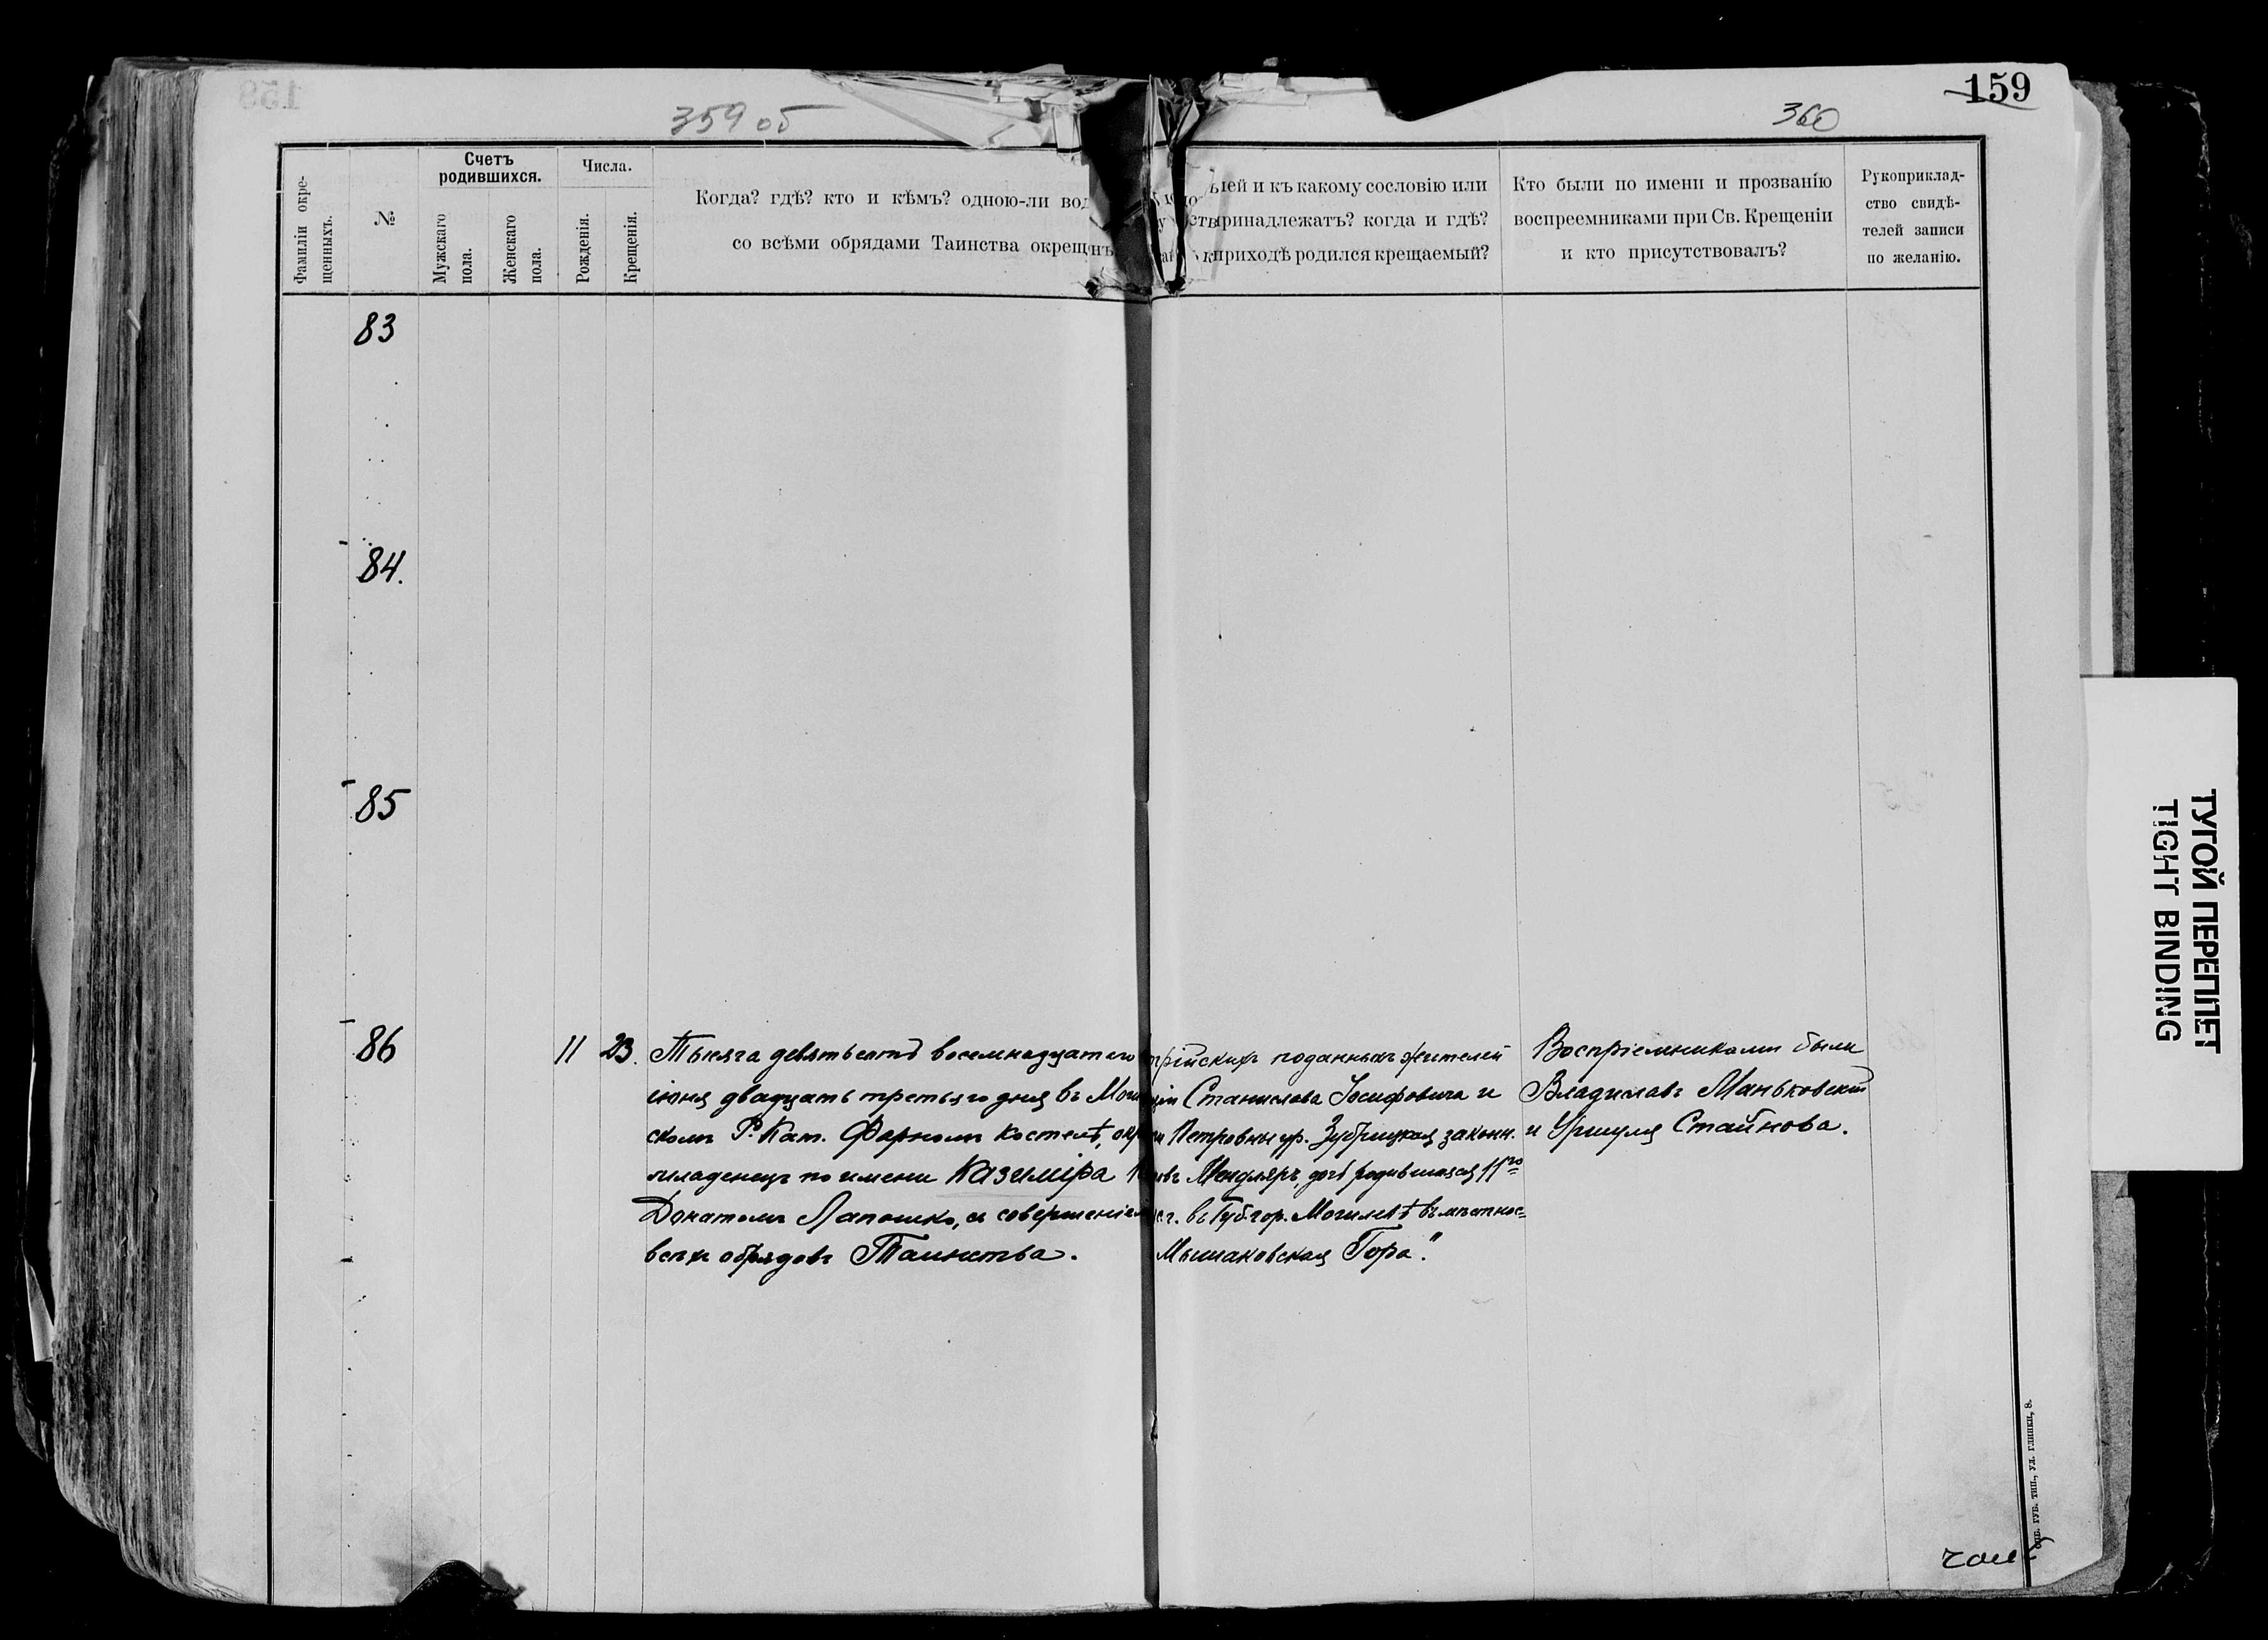 159
359 об
360
159
Фамиліи окре-
щенныхъ.
№
Счетъ
родившихся.
Мужскаго
пола.
Женскаго
пола.
Числа.
Рожденія.
Крещенія.
Когда? гдѣ? кто и кѣмъ? одною-ли вод
со всѣми обрядами Таинства окрещенъ
и къ какому сословію или
принадлежатъ? когда и гдѣ?
приходѣ родился крещаемый?
Кто были по имени и прозванію
воспреемниками при Св. Крещеніи
и кто присутствовалъ?
Рукоприклад-
ство свидѣ-
телей записи
по желанію.
83
84.
85
86
11
23.
Тысяча девятьсотъ восемнадцатого
іюня двадцать третьяго дня въ Моги
скомъ Р. Кат. Фарномъ костелѣ, окр
младенецъ по имени Казиміра
Донатомъ Лапошко, съ совершеніем
всѣхъ обрядовъ Таинства.
рійскихъ поданныхъ жителей
Станислава Іосифовича и
Петровны ур. Зубрицкая законн.
Мендляръ, дочь родившаяся 11го
с.г. въ Губ. гор. Могилевѣ въ мѣстнос=
Мышаковская Гора".
Воспріемниками были
Владиславъ Маньковскій
и Уршуля Стайнова.
СПБ. ГУБ. ТИП., УЛ. ГЛИНКИ, 8.
ТУГОЙ ПЕРЕПЛЕТ
TIGHT BINDING